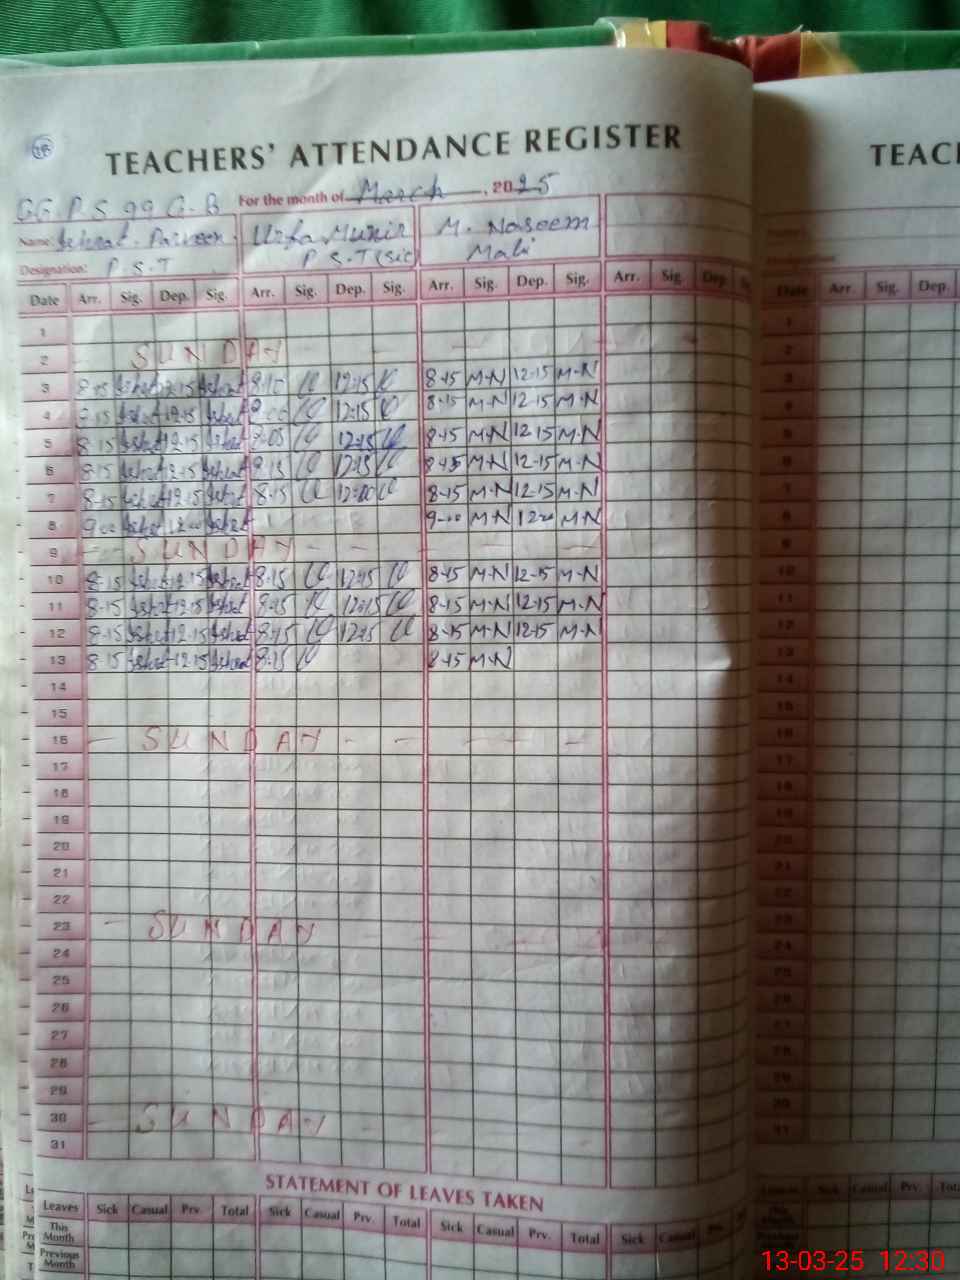 TEACHERS' ATTENDANCE REGISTER
TEAC
G.G.P.S 99 G-B For the month of March, 2025
Name: Ishrat Parveen Urfa Munir M. Naseem
Designation: P.S.T P.S.T (sic) Mali
Date Arr. Sig. Dep. Sig. Arr. Sig. Dep. Sig. Arr. Sig. Dep. Sig. Arr. Sig. Dep. Date Arr. Sig. Dep.
1
2 SUNDAY
3 8-15 Ishrat 12-15 Ishrat 8-10 12-15 8-15 M-N 12-15 M-N
4 8-15 Ishrat 12-15 Ishrat 12-15 8-15 M-N 12-15 M-N
5 8-15 Ishrat 12-15 Ishrat 12-15 8-15 M-N 12-15 M-N
6 8-15 Ishrat 12-15 Ishrat 12-15 8-15 M-N 12-15 M-N
7 8-15 Ishrat 12-15 Ishrat 8-15 12-00 8-15 M-N 12-15 M-N
8 9-00 Ishrat 12-00 Ishrat 9-00 M-N 12-00 M-N
9 SUNDAY
10 8-15 Ishrat 12-15 Ishrat 8-15 12-15 8-15 M-N 12-15 M-N
11 8-15 Ishrat 12-15 Ishrat 8-15 12-15 8-15 M-N 12-15 M-N
12 8-15 Ishrat 12-15 Ishrat 8-15 12-15 8-15 M-N 12-15 M-N
13 8-15 Ishrat 12-15 Ishrat 8-15 8-15 M-N
14
15
16 SUNDAY
17
18
19
20
21
22
23 SUNDAY
24
25
26
27
28
29
30 SUNDAY
31
STATEMENT OF LEAVES TAKEN
Leaves Sick Casual Prv. Total Sick Casual Prv. Total Sick Casual Prv. Total Sick Casual
This Month
Previous Month
13-03-25 12:30